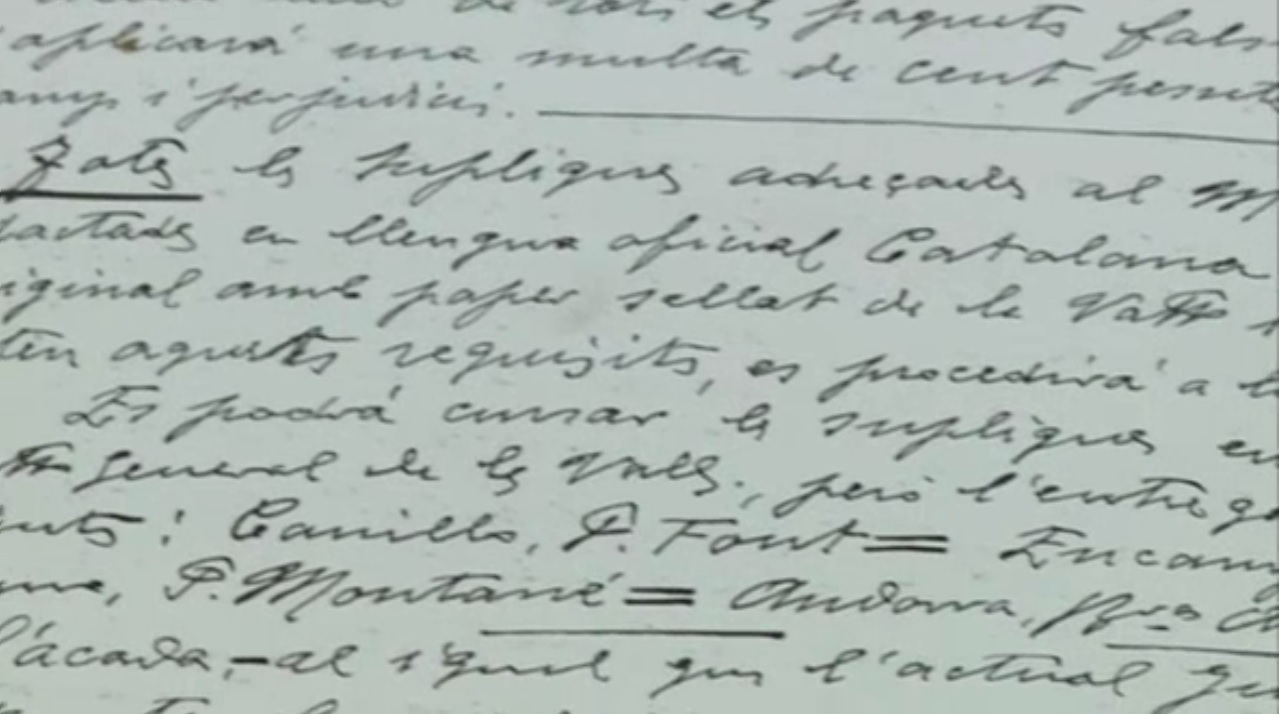 de tots els paquets fals
aplicará una multa de cent pesset
anys i perjudicis.
Totes les supliques adreçades al M
dactades en llengua oficial Catalana
iginal amb paper sellat de les Valls
ten aquests requisits, es procedirá a l
Es podrá cursar les supliques en
General de les Valls., peró l'entrega
Canillo, P. Font = Encamp
me, P. Montané = Andorra,
l'ácada,-al igual que l'actual